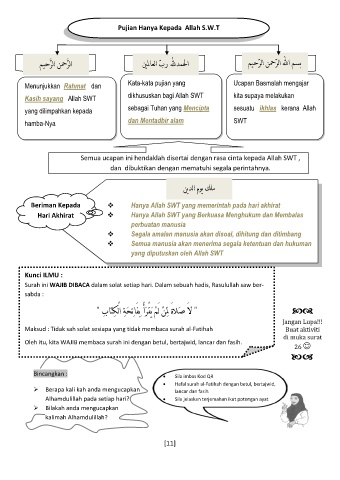 Pujian Hanya Kepada Allah S.W.T
بِسْمِ اللهِ الرَّحْمَنِ الرَّحِيمِ
الْحَمْدُ للهِ رَبِّ الْعَالَمِيْنَ
الرَّحْمَنِ الرَّحِيمِ
Menunjukkan Rahmat dan
Kasih sayang Allah SWT
yang dilimpahkan kepada
hamba-Nya
Kata-kata pujian yang
dikhususkan bagi Allah SWT
sebagai Tuhan yang Mencipta
dan Mentadbir alam
Ucapan Basmalah mengajar
kita supaya melakukan
sesuatu ikhlas kerana Allah
SWT
Semua ucapan ini hendaklah disertai dengan rasa cinta kepada Allah SWT ,
dan dibuktikan dengan mematuhi segala perintahnya.
ملك يوم الدين
Beriman Kepada
Hari Akhirat
❖ Hanya Allah SWT yang memerintah pada hari akhirat
❖ Hanya Allah SWT yang Berkuasa Menghukum dan Membalas
perbuatan manusia
❖ Segala amalan manusia akan disoal, dihitung dan ditimbang
❖ Semua manusia akan menerima segala ketentuan dan hukuman
yang diputuskan oleh Allah SWT
Kunci ILMU :
Surah ini WAJIB DIBACA dalam solat setiap hari. Dalam sebuah hadis, Rasulullah saw ber-
sabda :
" لَا صَلَاةَ لِمَنْ لَمْ يَقْرَأْ بِفَاتِحَةِ الْكِتَابِ "
Maksud : Tidak sah solat sesiapa yang tidak membaca surah al-Fatihah
Oleh itu, kita WAJIB membaca surah ini dengan betul, bertajwid, lancar dan fasih.
Jangan Lupa!!!
Buat aktiviti
di muka surat
26 ☺
Bincangkan :
➢ Berapa kali kah anda mengucapkan
Alhamdulillah pada setiap hari?
➢ Bilakah anda mengucapkan
kalimah Alhamdulillah?
• Sila imbas Kod QR
• Hafal surah al-Fatihah dengan betul, bertajwid,
lancar dan fasih
• Sila jelaskan terjemahan ikut potongan ayat
[11]